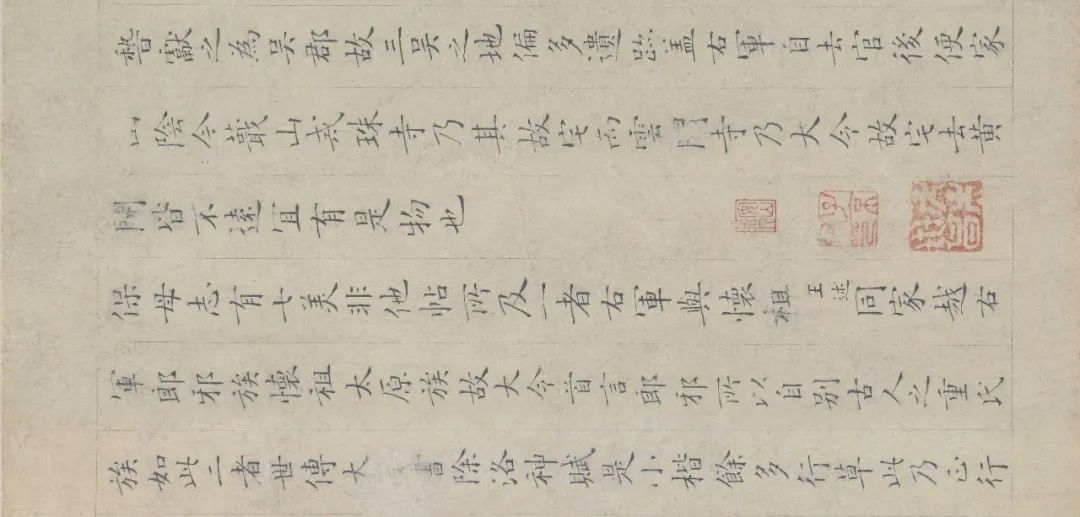 誓獻之為吳郡故三吳之地偏多遺跡蓋右軍自去官後便家
山陰今蕺山戒珠寺乃其故宅而雲門寺乃大令故宅去黃
閍皆不遠宜有是物也
保母志有七美非他帖所及一者右軍與懷祖王述同家越右
軍耶邪族懷祖太原族故大令首言耶邪所以自別古人之重氏
族如此二者世傳大書除洛神賦是小楷餘多行草此乃正行